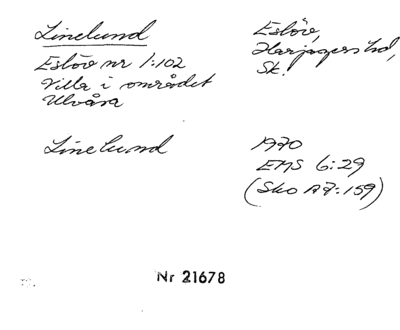 Linelund
Eslöv,
Harjagers hd,
Sk.
Eslöv nr 1:102
Villa i området
Ulvåsa
Linelund
1970
EMS 6:29
(Sko A7:159)
Nr 21678